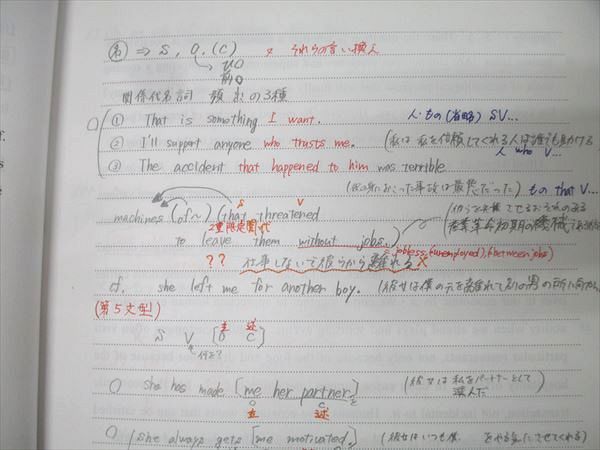 名 ⇒ S, O, (C) それらの言い換え
VO
前O
関係代名詞 頻出の3種
① That is something I want. 人・もの(省略) SV...
② I'll support anyone who trusts me. (私は私を信頼してくれる人は誰でも助ける
人 who V...
③ The accident that happened to him was terrible.
(彼の身におこった事故は最悪だった) もの that V...
S V
machines (of~) (that threatened
2重限定 関・代
to leave them without jobs.)
産業革命初期の機械
jobless, (unemployed), (between jobs)
?? 仕事しないで彼らから離れる ×
cf. she left me for another boy. (彼女は僕の元を離れて別の男の所に向かった
(第5文型)
主 述
S V [O C]
何を?
○ she has made [me her partner.] (彼女は私をパートナーとして
選んだ
O C
主 述
○ she always gets [me motivated.] (彼女はいつも僕 をやる気にさせてくれる)